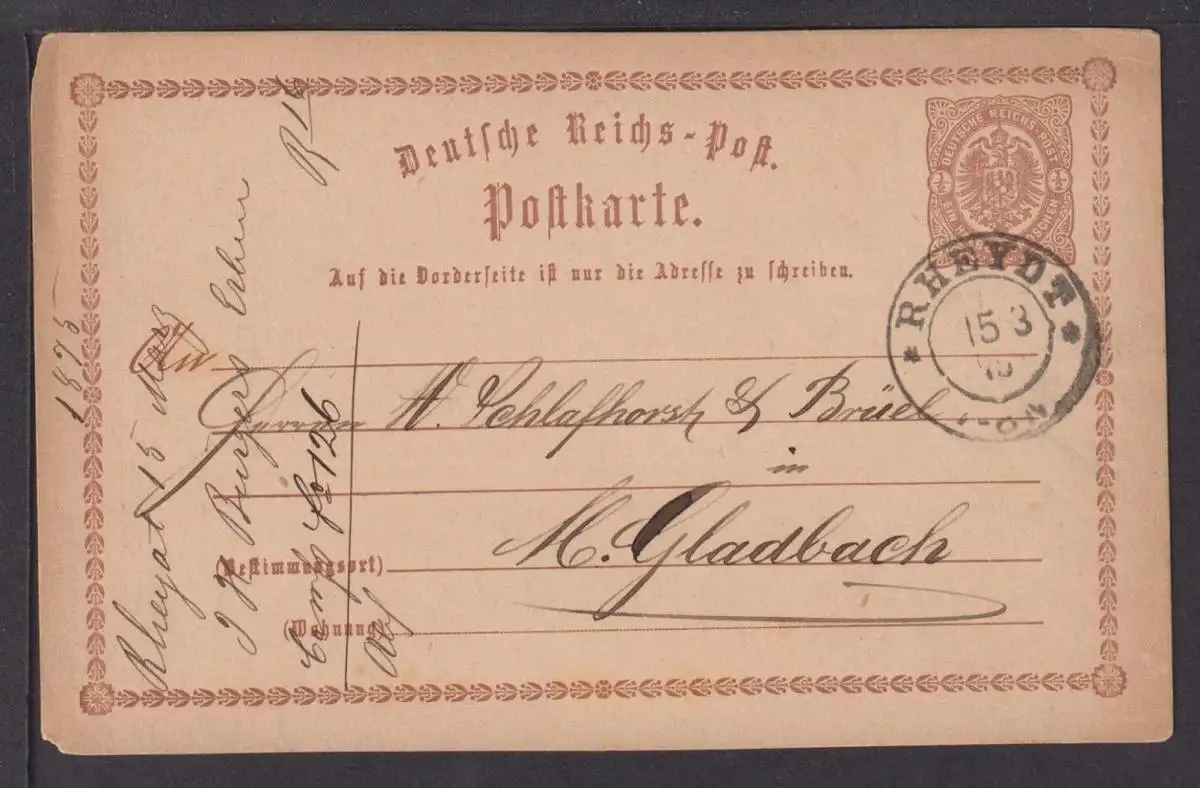 Deutsche Reichs-Post.
Postkarte.
Auf die Vorderseite ist nur die Adresse zu schreiben.
DEUTSCHE REICHS-POST
½ ½
EIN
RHEYDT
15 3
An
Herren A. Schlafhorst & Brüel
in
M. Gladbach
(Bestimmungsort)
(Wohnung)
1875
Rheydt 15 März
J H Burgers Erben
126
R 16